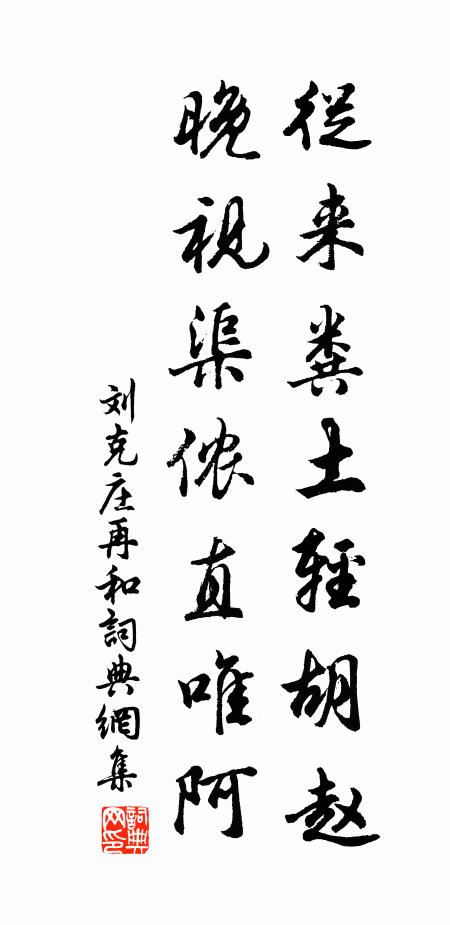 從来粪土輕胡赵
晚視渠侬直唯阿
刘克庄再和詞典網集
詞典网印